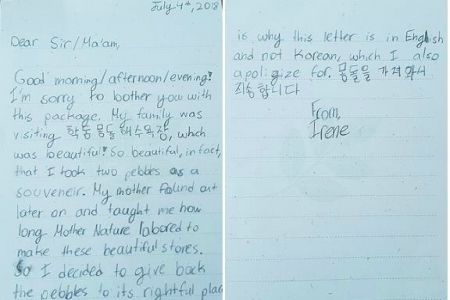 July 4th, 2018
Dear Sir/Ma'am,
Good morning/afternoon/evening!
I'm sorry to boother you with
this package. My family was
visiting 학동몽돌해수욕장, which
was beautiful! So beautiful, in fact,
that I took two pebbles as a
souveneir. My mother found out
later on and taught me how
long Mother Nature labored to
make these beautiful stones.
So I decided to give back
the pebbles to its rightful place
is why this letter is in English
and not Korean, which I also
apoligize for. 몽돌을 가져와서
죄송합니다
From,
Irene